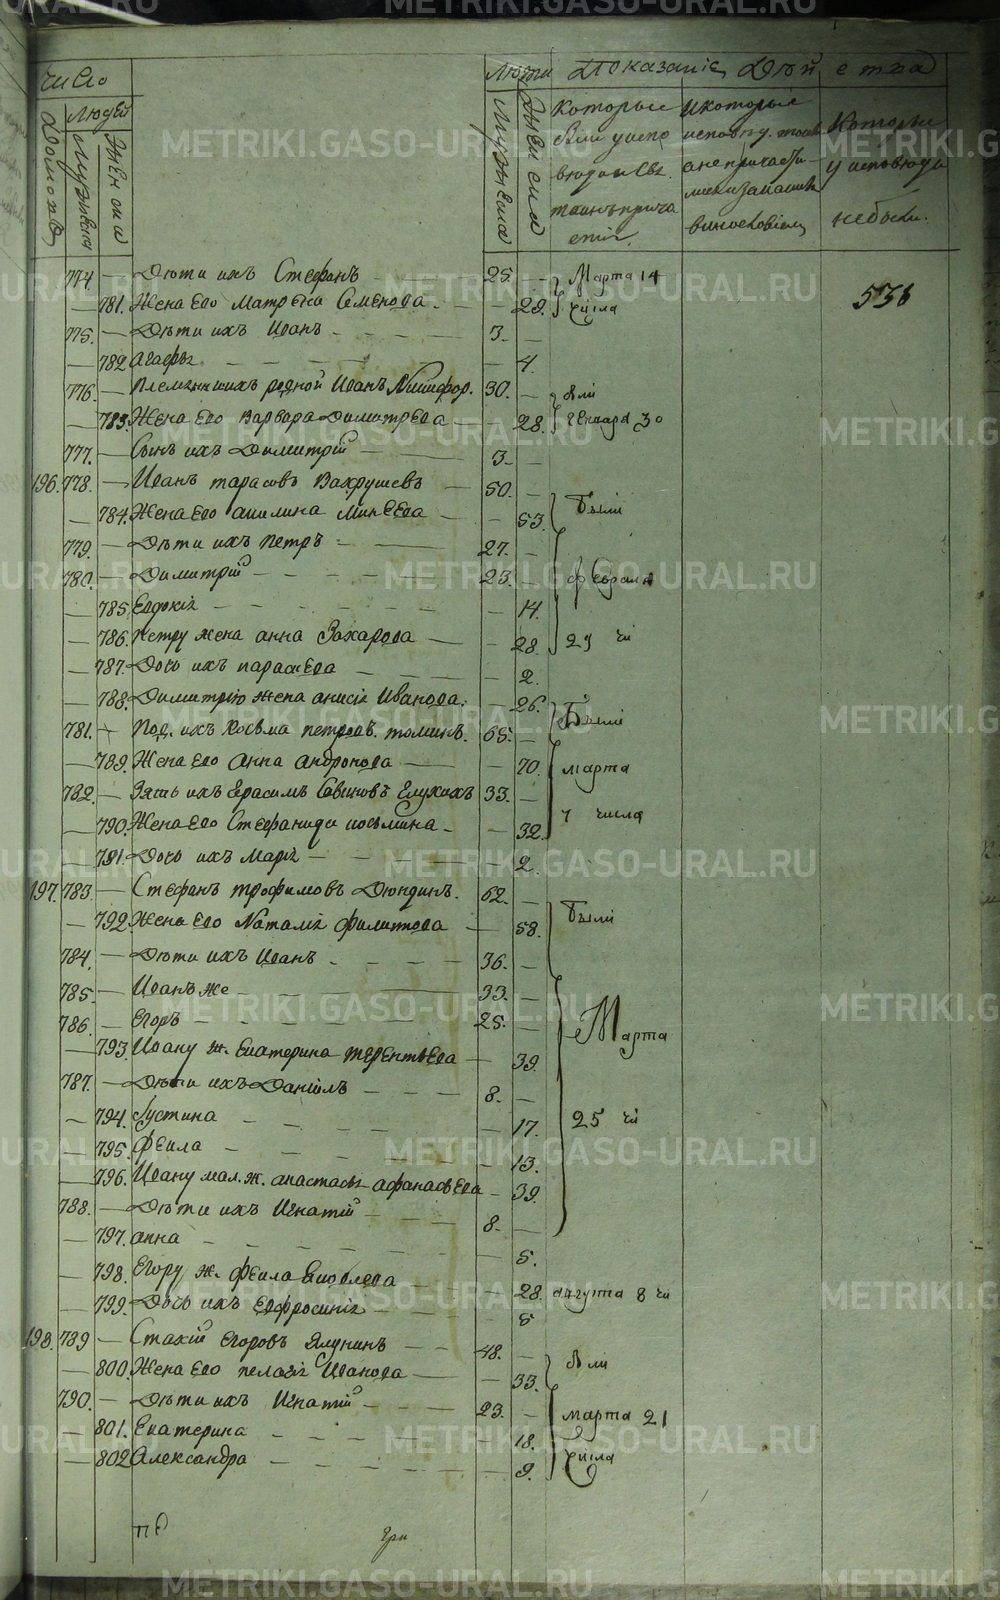 число
людей
домовъ
мужеска
женска
Люди
мужеска
женска
Показаніе Дѣйства
которые были у исповѣди и Св. таинъ причастія
и которые исповѣд. токмо а не причастились и за какимъ винословіемъ
Которые у исповѣди не были.
538
774 — Дѣти ихъ Стефанъ 25. — Марта 14
— 781. Жена Его Матрена Семенова — 29. числа
775. — Дѣти ихъ Иванъ 3. —
— 782 Агафья — 4.
776. — Племянникъ родной Иванъ Никифор. 30. — были
— 783. Жена Его Варвара Димитрева — 28. Генваря 30
777. — Сынъ ихъ Димитрій 3. —
196. 778. — Иванъ тарасовъ Вахрушевъ — 50. — Были
— 784. Жена Его акилина Минеева — 53.
779. — Дѣти ихъ Петръ 27. —
780. — Димитрій 23. — февраля
— 785. Евдокія — 14.
— 786. Петру жена анна Захарова — 28. 29 чи
— 787. Дочь ихъ параскева — 2.
— 788. Димитрію жена анисія Иванова. — 26. Были
781. — Под. ихъ Косьма петровъ. томинъ. 65. —
— 789. Жена Его Анна андронова — 70. марта
782. — Зять ихъ Герасимъ Савиновъ Глухихъ 33. —
— 790. Жена Его Стефанида косьмина — 32. 7 числа
— 791. Дочь ихъ Марія — 2.
197. 783. — Стефанъ трофимовъ Дюндинъ. 62. — Были
— 792 Жена Его Наталія филиппова — 58.
784. — Дѣти ихъ Иванъ 36. —
785. — Иванъ же 33. —
786. — Егоръ 25. — Марта
— 793. Ивану ж. Екатерина терентьева — 39.
787. — Дѣти ихъ Даніилъ 8. —
— 794. Іустина — 17. 25 чи
— 795. феила — 13.
— 796. Ивану мал. ж. анастасья афанасьева — 39.
788. — Дѣти ихъ Игнатій 8. —
— 797. анна — 5.
— 798. Егору ж. феила Яковлева — 28. августа 8 чи
— 799. Дочь ихъ евфросинія — 5
198. 789 — Стахій егоровъ Ялунинъ 48. — были
— 800. Жена Его пелагія Иванова — 33.
790. — Дѣти ихъ Игнатій 23. — марта 21
— 801. Екатерина — 18. числа
— 802. Александра — 9.
METRIKI.GASO-URAL.RU